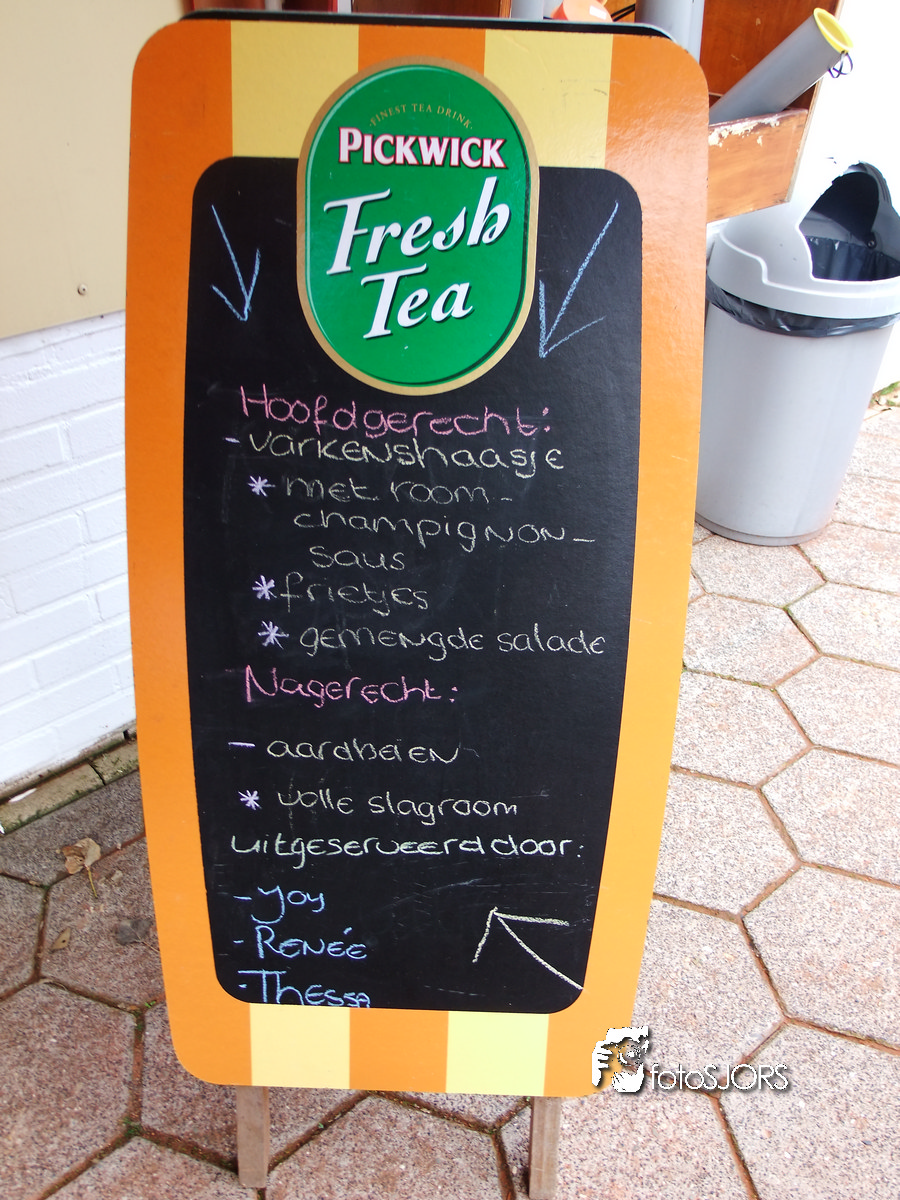 FINEST TEA DRINK
PICKWICK
Fresh
Tea
Hoofdgerecht:
- varkenshaasje
* met room-
champignon-
saus
* frietjes
* gemengde salade
Nagerecht:
- aardbeien
* volle slagroom
uitgeserveerd door:
- Joy
- Renée
- Thessa
fotoSJORS